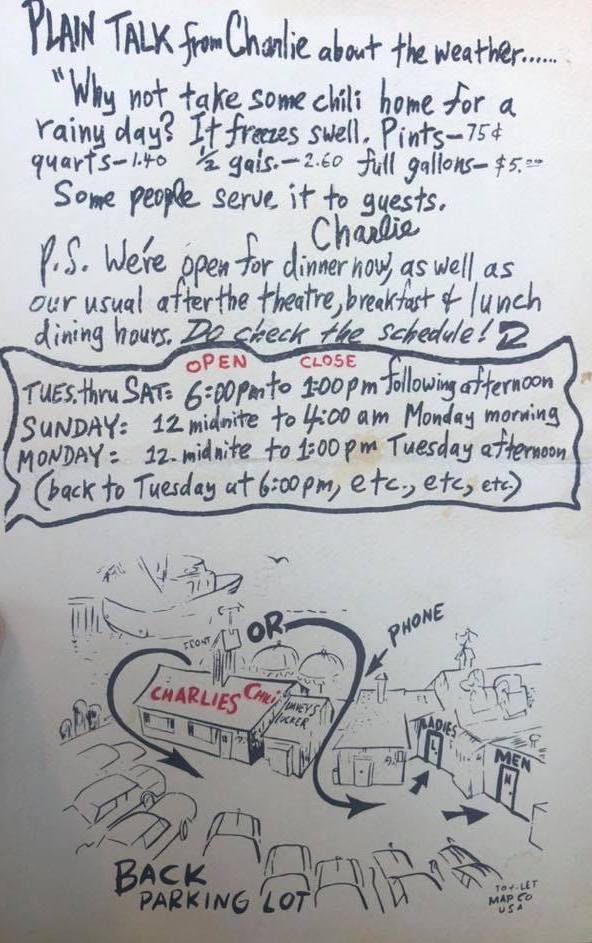 PLAIN TALK from Charlie about the weather......
"Why not take some chili home for a
rainy day? It freezes swell. Pints-75¢
quarts-1.40 ½ gals.-2.60 full gallons-$5.00
Some people serve it to guests.
Charlie
P.S. We're open for dinner now, as well as
our usual after the theatre, breakfast & lunch
dining hours. Do check the schedule!
OPEN CLOSE
TUES. thru SAT: 6:00pm to 1:00pm following afternoon
SUNDAY: 12 midnite to 4:00 am Monday morning
MONDAY: 12-midnite to 1:00pm Tuesday afternoon
(back to Tuesday at 6:00pm, etc., etc, etc.)
OR
PHONE
FRONT
CHARLIES Chili
DAVEY'S
LOCKER
LADIES
L
MEN
M
BACK
PARKING LOT
TOY-LET
MAP CO
USA